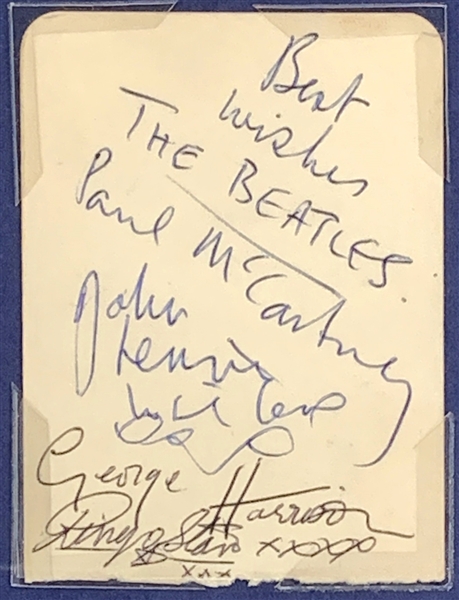 Best
wishes
THE BEATLES.
Paul McCartney
John
Lennon
love
George Harrison
Ringo Starr xxxxx
xxx